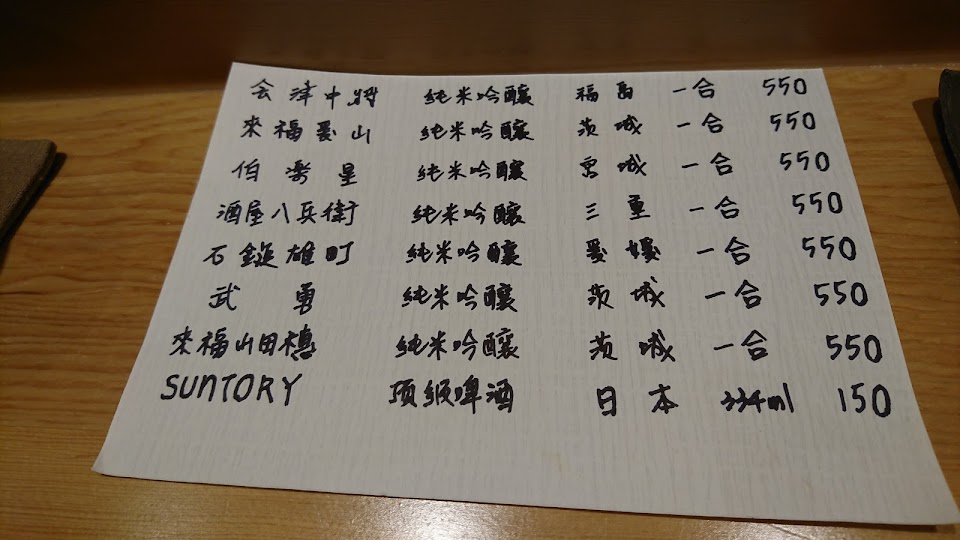 会津中将 純米吟釀 福島 一合 550
來福愛山 純米吟釀 茨城 一合 550
伯楽星 純米吟釀 宮城 一合 550
酒屋八兵衛 純米吟釀 三重 一合 550
石鎚雄町 純米吟釀 愛媛 一合 550
武勇 純米吟釀 茨城 一合 550
來福山田穗 純米吟釀 茨城 一合 550
SUNTORY 頂級啤酒 日本 334ml 150